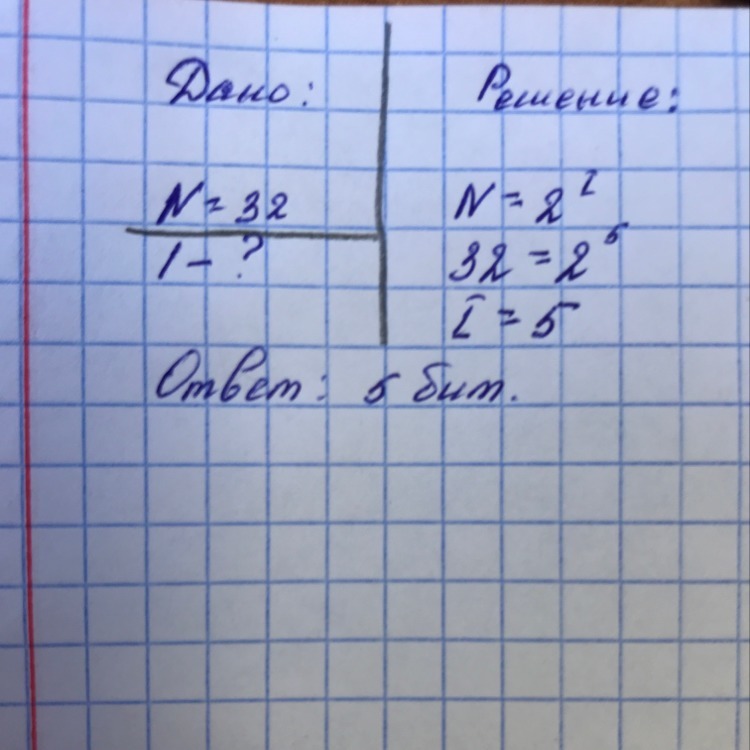 Дано:
N = 32
I - ?
Решение:
N = 2^I
32 = 2^5
I = 5
Ответ: 5 бит.